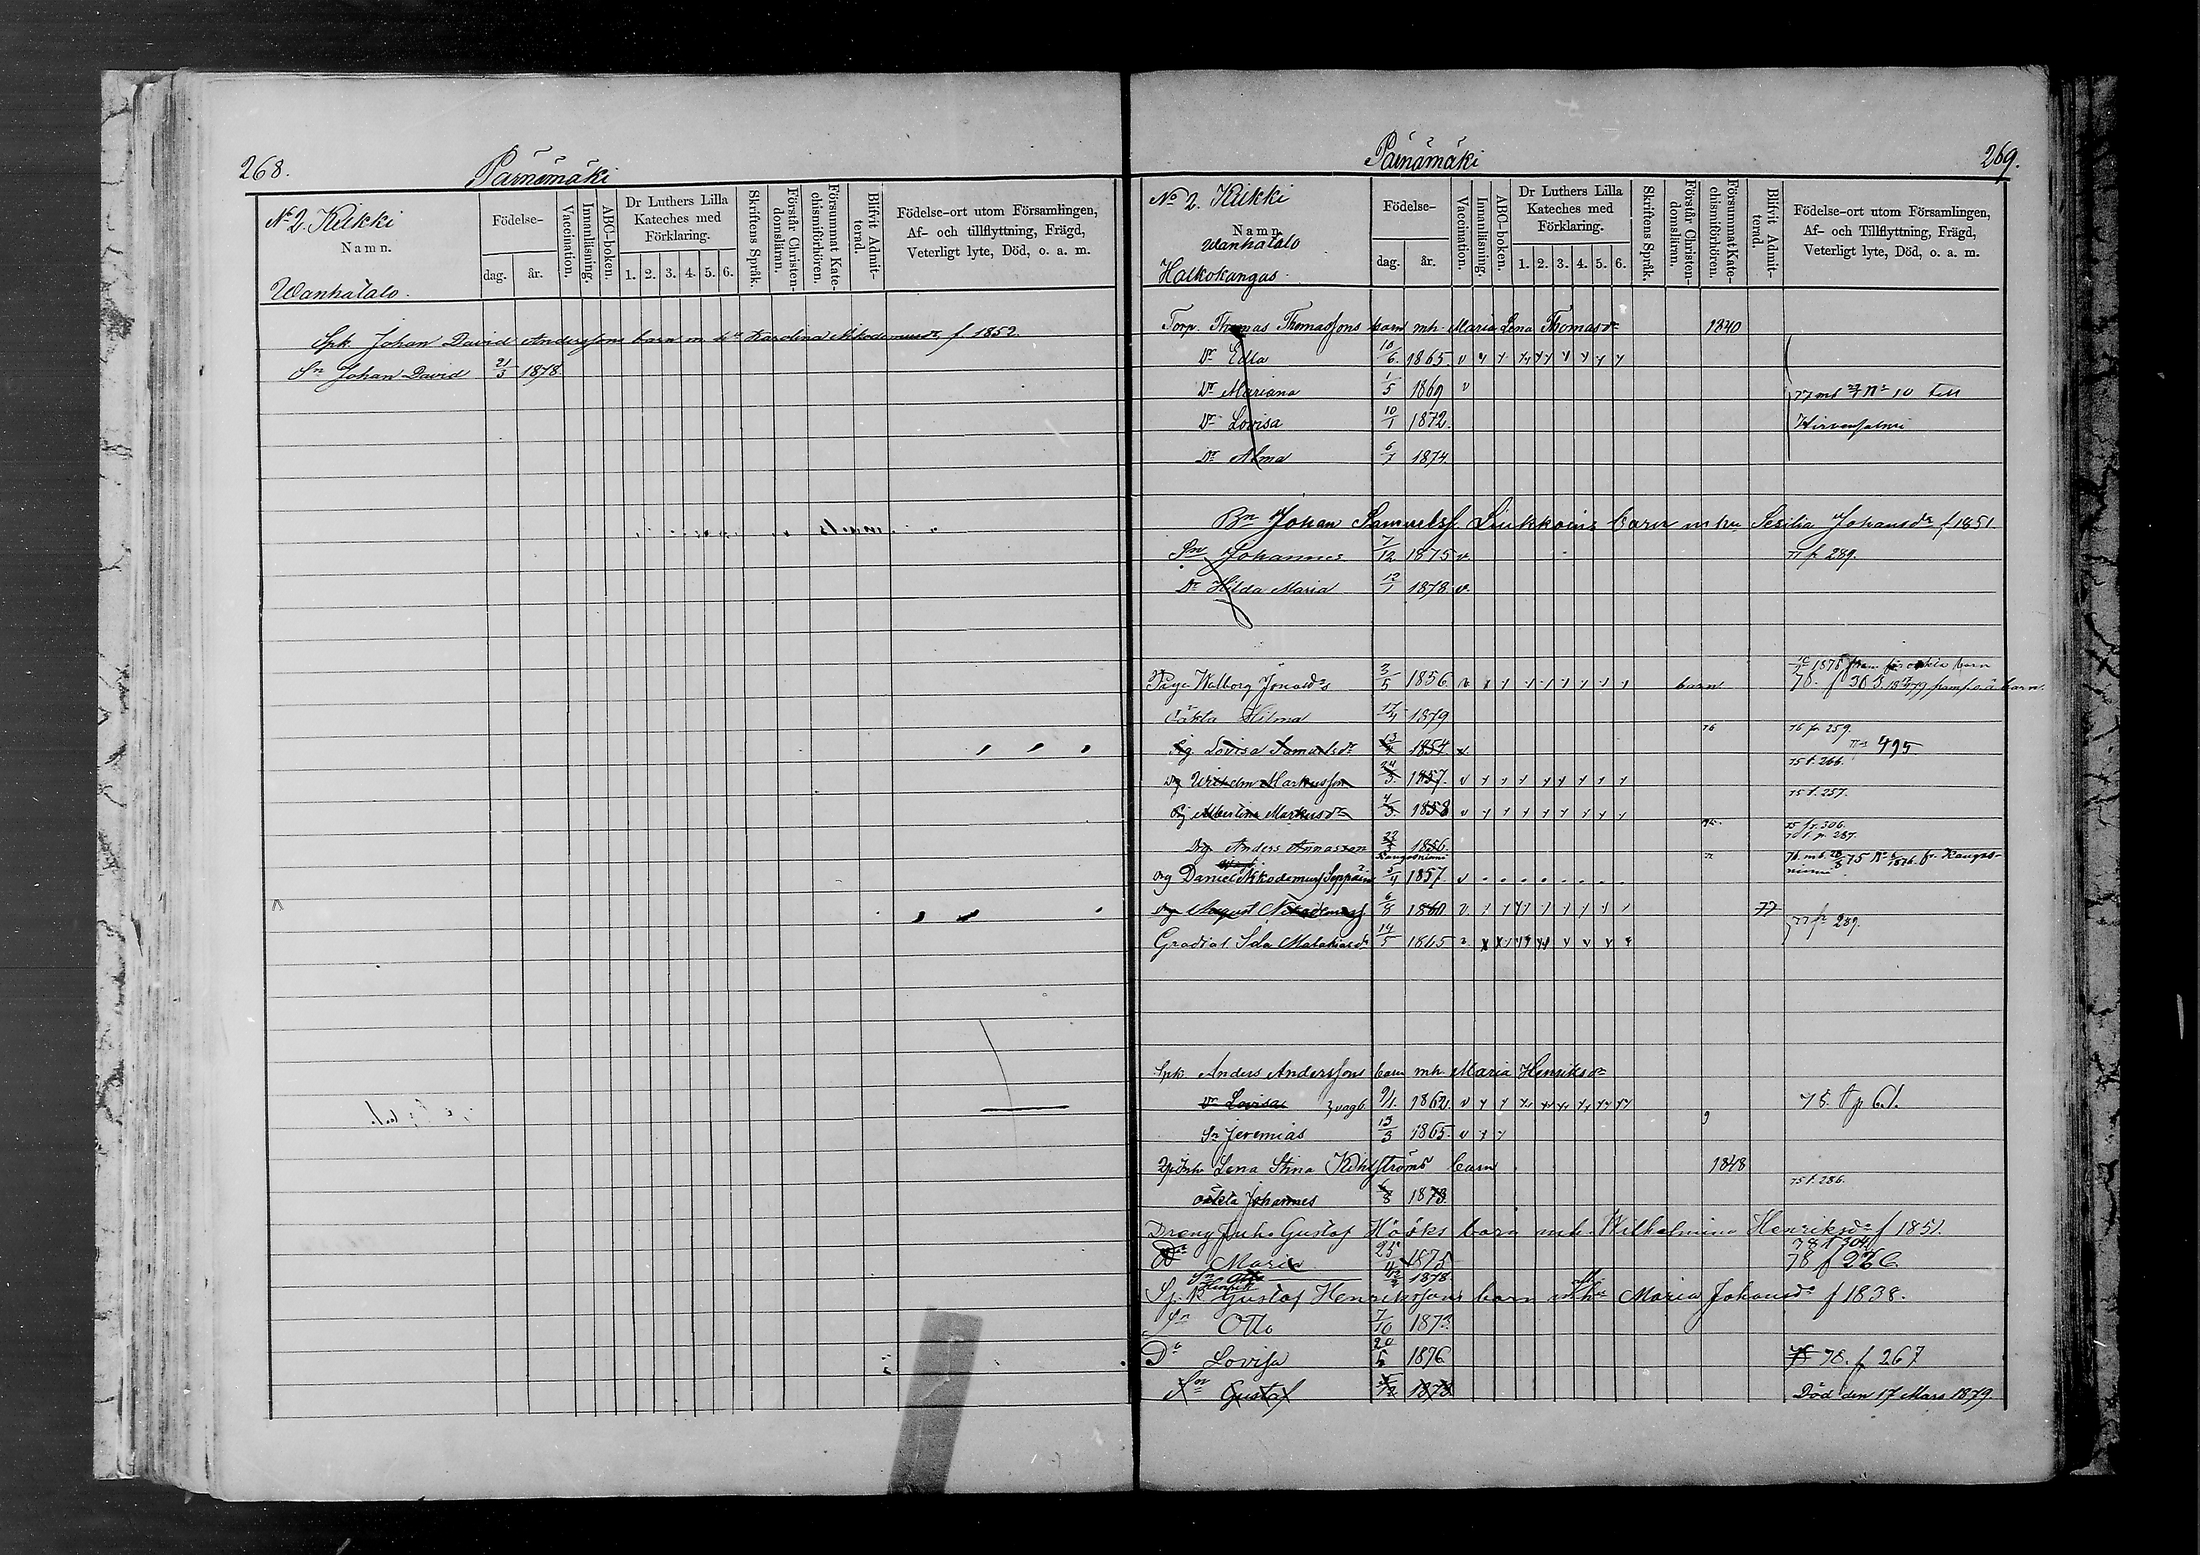 268.
Pärnämäki
No 2. Kiikki
Namn.
Wanhatalo.
Födelse-
dag.
år.
Vaccination.
Innanläsning.
ABC-boken.
Dr Luthers Lilla
Kateches med
Förklaring.
1. 2. 3. 4. 5. 6.
Skriftens Språk.
Förstår Christen-
domsläran.
Försummat Kate-
chismiförhören.
Blifvit Admit-
terad.
Födelse-ort utom Församlingen,
Af- och tillflyttning, Frägd,
Veterligt lyte, Död, o. a. m.
Spk Johan David Anderssons barn m. hu Karolina Nikodemusdr f. 1852.
Sn Johan David 21/3 1878
Pärnämäki
269.
No 2. Kiikki
Namn.
Wanhatalo
Halkokangas.
Födelse-
dag.
år.
Vaccination.
Innanläsning.
ABC-boken.
Dr Luthers Lilla
Kateches med
Förklaring.
1. 2. 3. 4. 5. 6.
Skriftens Språk.
Förstår Christen-
domsläran.
Försummat Kate-
chismiförhören.
Blifvit Admit-
terad.
Födelse-ort utom Församlingen,
Af- och Tillflyttning, Frägd,
Veterligt lyte, Död, o. a. m.
Torp. Thomas Thomassons barn mh. Maria Lena Thomasdr 1840
Dr Edla 10/6. 1865. v
Dr Mariana 1/5 1869 v 77 mb No 10 till
Dr Lovisa 10/1 1872. Hirvensalmi
Dr Alma 6/7 1874.
Bn Johan Samuelss. Liukkoins barn m hu Sesilia Johansdr f 1851
Sn Johannes 7/12 1875 v. 77 f 289.
Dr Hilda Maria 12/1 1878. v.
Walborg Jonasdr 3/5 1856 barn 78. f 308.
oäkta Hilma 17/4 1879
Pig. Lovisa Samuelsdr 13/4 1854 v. 76 76 fr 259. 495
Dg Wilhelm Markusson 24/3. 1857. v 75 t. 266.
Pg Albertina Markusdr 4/3. 1858 v 75 t. 257.
Drg Anders Annasson 22/3 1856. 75 fr. 306.
Kangasniemi
Drg Daniel Nikodemuss Seppäin 3/4 1857. v 76. mb. 28/8 75 fr. Kangas-
niemi
Drg August Nikodemuss 6/8 1860 v. 77 77 fr 289.
Gradial Ida Malakiasdr 14/5 1865
Spk. Anders Anderssons barn mh. Maria Henriksdr
Dr Lovisa 9/1. 1862. v 78. f p 61.
Sn Jeremias 13/3 1865. v
Lena Stina barn 1848
oäkta Johannes 6/8 1873. 75 t. 286.
Dreng Juho Gustaf Hööks barn mh. Wilhelmina Henriksdr f 1851.
78 f 304
Dr Maria 25/4 1875 78 f 266
Sn Otto Henrik 1878
Gustaf Henrikssons barn m hu Maria Johansdr f 1838.
Sn Otto 7/10 1873.
Dr Lovisa 20/5 1876 78. f 267
Sn Gustaf 1878 Död den 17 Mars 1879.